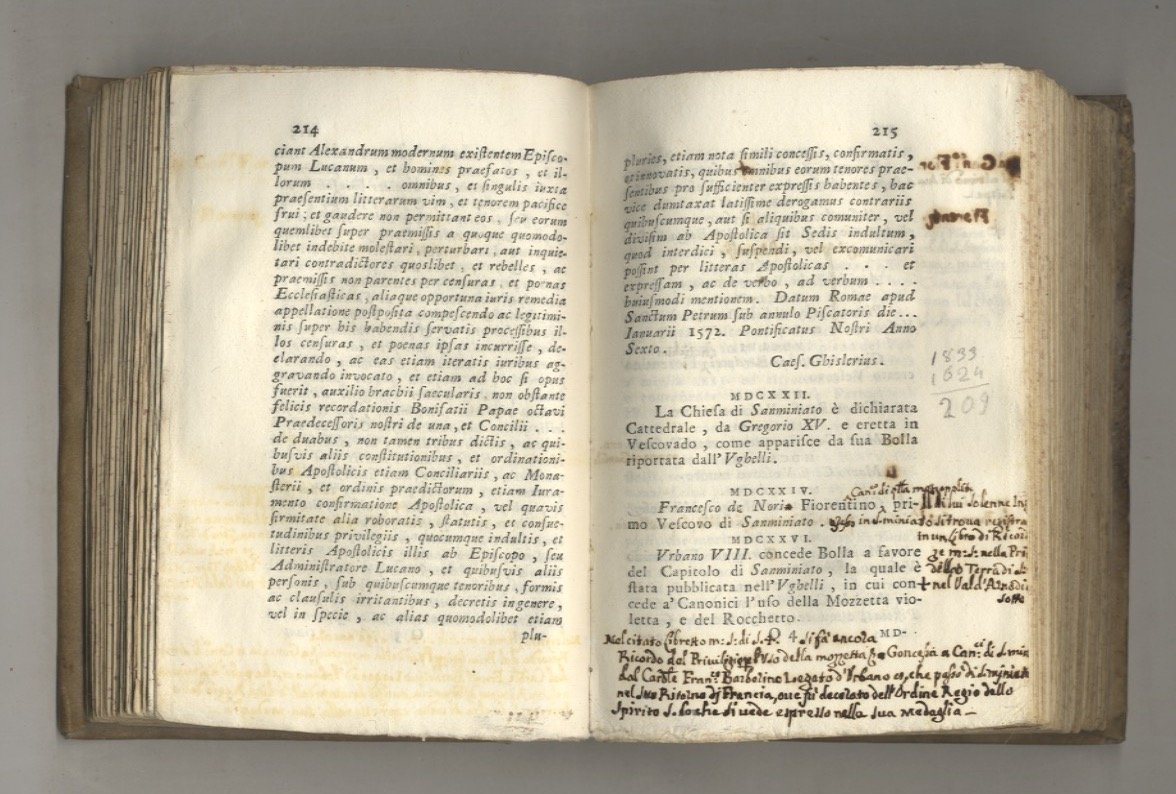 214
ciant Alexandrum modernum existentem Episco-
pum Lucanum, et homines praefatos, et il-
lorum . . . . omnibus, et singulis iuxta
praesentium litterarum vim, et tenorem pacifice
frui; et gaudere non permittant eos, seu eorum
quemlibet super praemissis a quoque quomodo-
libet indebite molestari, perturbari, aut inquie-
tari contradictores quoslibet, et rebelles, ac
praemissis non parentes per censuras, et poenas
Ecclesiasticas, aliaque opportuna iuris remedia
appellatione postposita compescendo ac legitimi-
nis super his habendis servatis processibus il-
los censuras, et poenas ipsas incurrisse, de-
clarando, ac eas etiam iteratis iuribus ag-
gravando invocato, et etiam ad hoc si opus
fuerit, auxilio brachii saecularis, non obstante
felicis recordationis Bonifatii Papae octavi
Praedecessoris nostri de una, et Concilii . . .
de duabus, non tamen tribus dictis, ac qui-
busvis aliis constitutionibus, et ordinationi-
bus Apostolicis etiam Conciliariis, ac Mona-
sterii, et ordinis praedictorum, etiam Iura-
mento confirmatione Apostolica, vel quavis
firmitate alia roboratis, statutis, et consue-
tudinibus privilegiis, quocumque indultis, et
litteris Apostolicis illis ab Episcopo, seu
Administratore Lucano, et quibusvis aliis
personis, sub quibuscumque tenoribus, formis
ac clausulis irritantibus, decretis in genere,
vel in specie, ac alias quomodolibet etiam
plu-
215
pluries, etiam nota simili concessis, confirmatis,
et innovatis, quibus omnibus eorum tenores prae-
sentibus pro sufficienter expressis habentes, hac
vice dumtaxat latissime derogamus contrariis
quibuscumque, aut si aliquibus comuniter, vel
divisim ab Apostolica sit Sedis indultum,
quod interdici, suspendi, vel excomunicari
possint per litteras Apostolicas . . . et
expressam, ac de verbo, ad verbum . . . .
huiusmodi mentionem. Datum Romae apud
Sanctum Petrum sub annulo Piscatoris die...
Ianuarii 1572. Pontificatus Nostri Anno
Sexto.
Caes. Ghislerius.
1833
1624
209
MDCXXII.
La Chiesa di Sanminiato è dichiarata
Cattedrale, da Gregorio XV. e eretta in
Vescovado, come apparisce da sua Bolla
riportata dall' Vghelli.
MDCXXIV.
Francesco de Nori Fiorentino, pri-
mo Vescovo di Sanminiato.
MDCXXVI.
Vrbano VIII. concede Bolla a favore
del Capitolo di Sanminiato, la quale è
stata pubblicata nell' Vghelli, in cui con-
cede a' Canonici l'uso della Mozzetta vio-
letta, e del Rocchetto.
O 4 MD-
di sui solenne
si troua registra
in un libro di Ricor
nella
Terra di S.
nel Vald'Arno di
sotto
Nel citato libretto m: s: di S. si fà ancora
Ricordo del Priuilegio Vso della mozzetta Concessa a Can.ci di S. min
dal Card.le Fran.co Barberino Legato d'Urbano 8, che passò di S. miniato
nel suo Ritorno di Francia, oue fù decorato dell'Ordine Regio dello
Spirito S. lo che si uede espresso nella sua Medaglia —